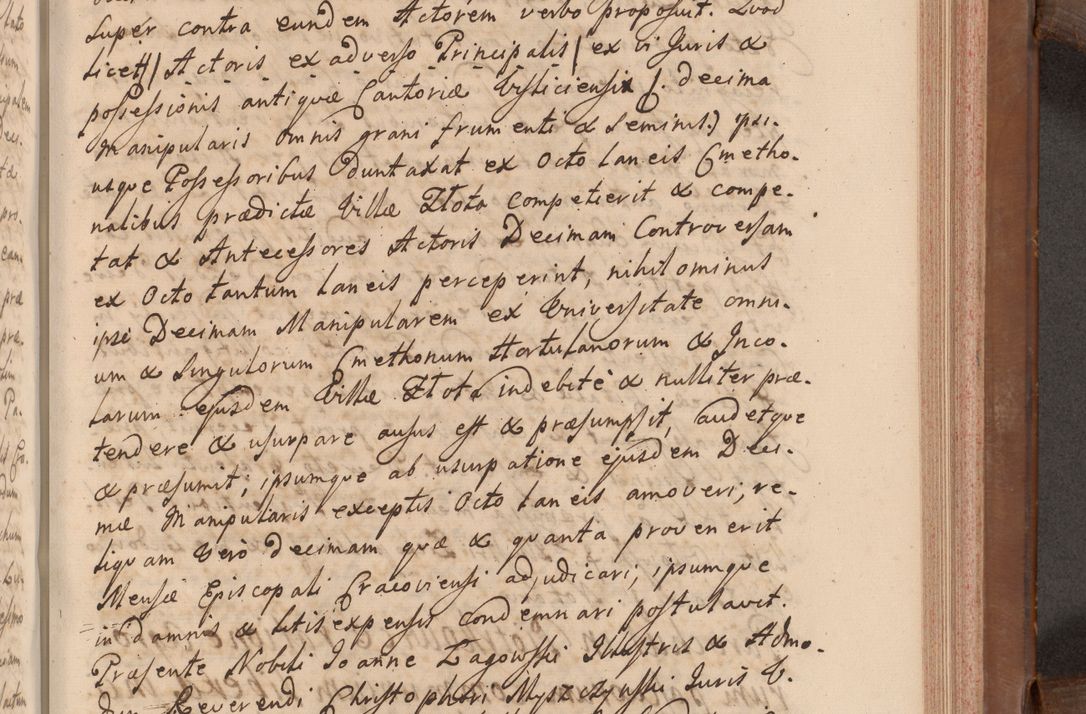 super contra eundem Actorem verbo proposuit. Quod
licet/ Actoris ex adverso Principalis/ ex vi Juris &
possessionis antiquæ Cantoriæ Visliciensis /. decima
Manipularis omnis grani frumenti & seminis.) ipsi-
usque Possessoribus duntaxat ex Octo laneis Cmetho-
nalibus prædictæ Villæ Złota competierit & compe-
tat & Antecessores Actoris Decimam Controversam
ex Octo tantum laneis perceperint, nihilominus
ipse Decimam Manipularem ex Universitate omni-
um & singulorum Cmethonum Hortulanorum & Inco-
larum ejusdem Villæ Złota indebitè & nulliter præ-
tendere & usurpare ausus est & præsumpsit, audetque
& præsumit; ipsumque ab usurpatione ejusdem Deci-
mæ Manipularis exceptis Octo laneis amoveri; re-
liquam verò Decimam quæ & quanta provenerit
Mensæ Episcopali Cracoviensi adjudicari; ipsumque
in damnis & litis expensis condemnari postulavit.
Præsente Nobili Joanne Łagowski Illustris & Admo-
dum Reverendi Christophori Myszczynski Juris V.